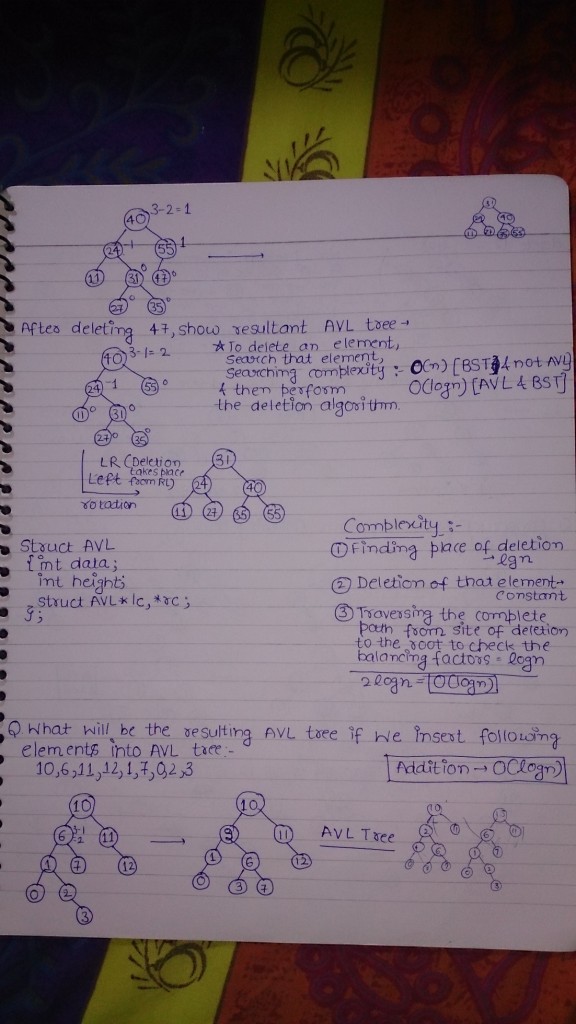 40 3-2=1
24 -1 55 1
11 31 0 47 0
27 0 35 0
31
24 40
11 27 35 55
After deleting 47, show resultant AVL tree →
40 3-1=2
24 -1 55 0
11 0 31 0
27 0 35 0
* To delete an element,
search that element,
searching complexity :- O(n) [BST & not AVL]
& then perform O(logn) [AVL & BST]
the deletion algorithm.
LR (Deletion
takes place
from RL)
Left
rotation
31
24 40
11 27 35 55
Struct AVL
{ int data;
int height;
struct AVL *lc, *rc;
};
Complexity :-
① Finding place of deletion
→ lgn
② Deletion of that element→
constant
③ Traversing the complete
path from site of deletion
to the root to check the
balancing factors = logn
2logn = O(logn)
Q. What will be the resulting AVL tree if we insert following
elements into AVL tree:-
10,6,11,12,1,7,0,2,3
Addition → O(logn)
10
6 11
1 7 12
0 2
3
10
11
1 6 12
0 3 7
AVL Tree